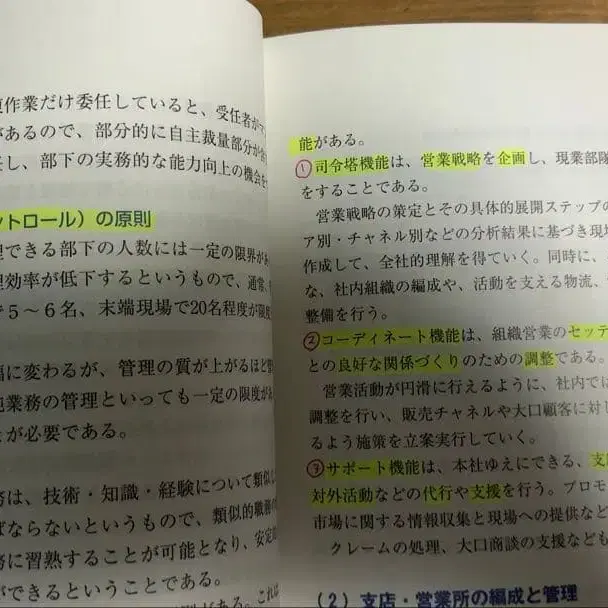 作業だけ委任していると、受任者が
があるので、部分的に自主裁量部分が
し、部下の実務的な能力向上の機会を
ットロール）の原則
理できる部下の人数には一定の限界が
理効率が低下するというもので、通常、
で５〜６名、末端現場で20名程度が限度
幅に変わるが、管理の質が上がるほど
業務の管理といっても一定の限度が
が必要である。
務は、技術・知識・経験について類似し
ばならないというもので、類似的職務の
務に習熟することが可能となり、安定
ができるということである。
がある。これは
能がある。
①司令塔機能は、営業戦略を企画し、現業部隊
をすることである。
営業戦略の策定とその具体的展開ステップの
ア別・チャネル別などの分析結果に基づき現場
作成して、全社的理解を得ていく。同時に、
な、社内組織の編成や、活動を支える物流、
整備を行う。
②コーディネート機能は、組織営業のセッテ
との良好な関係づくりのための調整である。
営業活動が円滑に行えるように、社内では
調整を行い、販売チャネルや大口顧客に対し
るよう施策を立案実行していく。
③サポート機能は、本社ゆえにできる、支
対外活動などの代行や支援を行う。プロモ
市場に関する情報収集と現場への提供など
クレームの処理、大口商談の支援なども
（２）支店・営業所の編成と管理